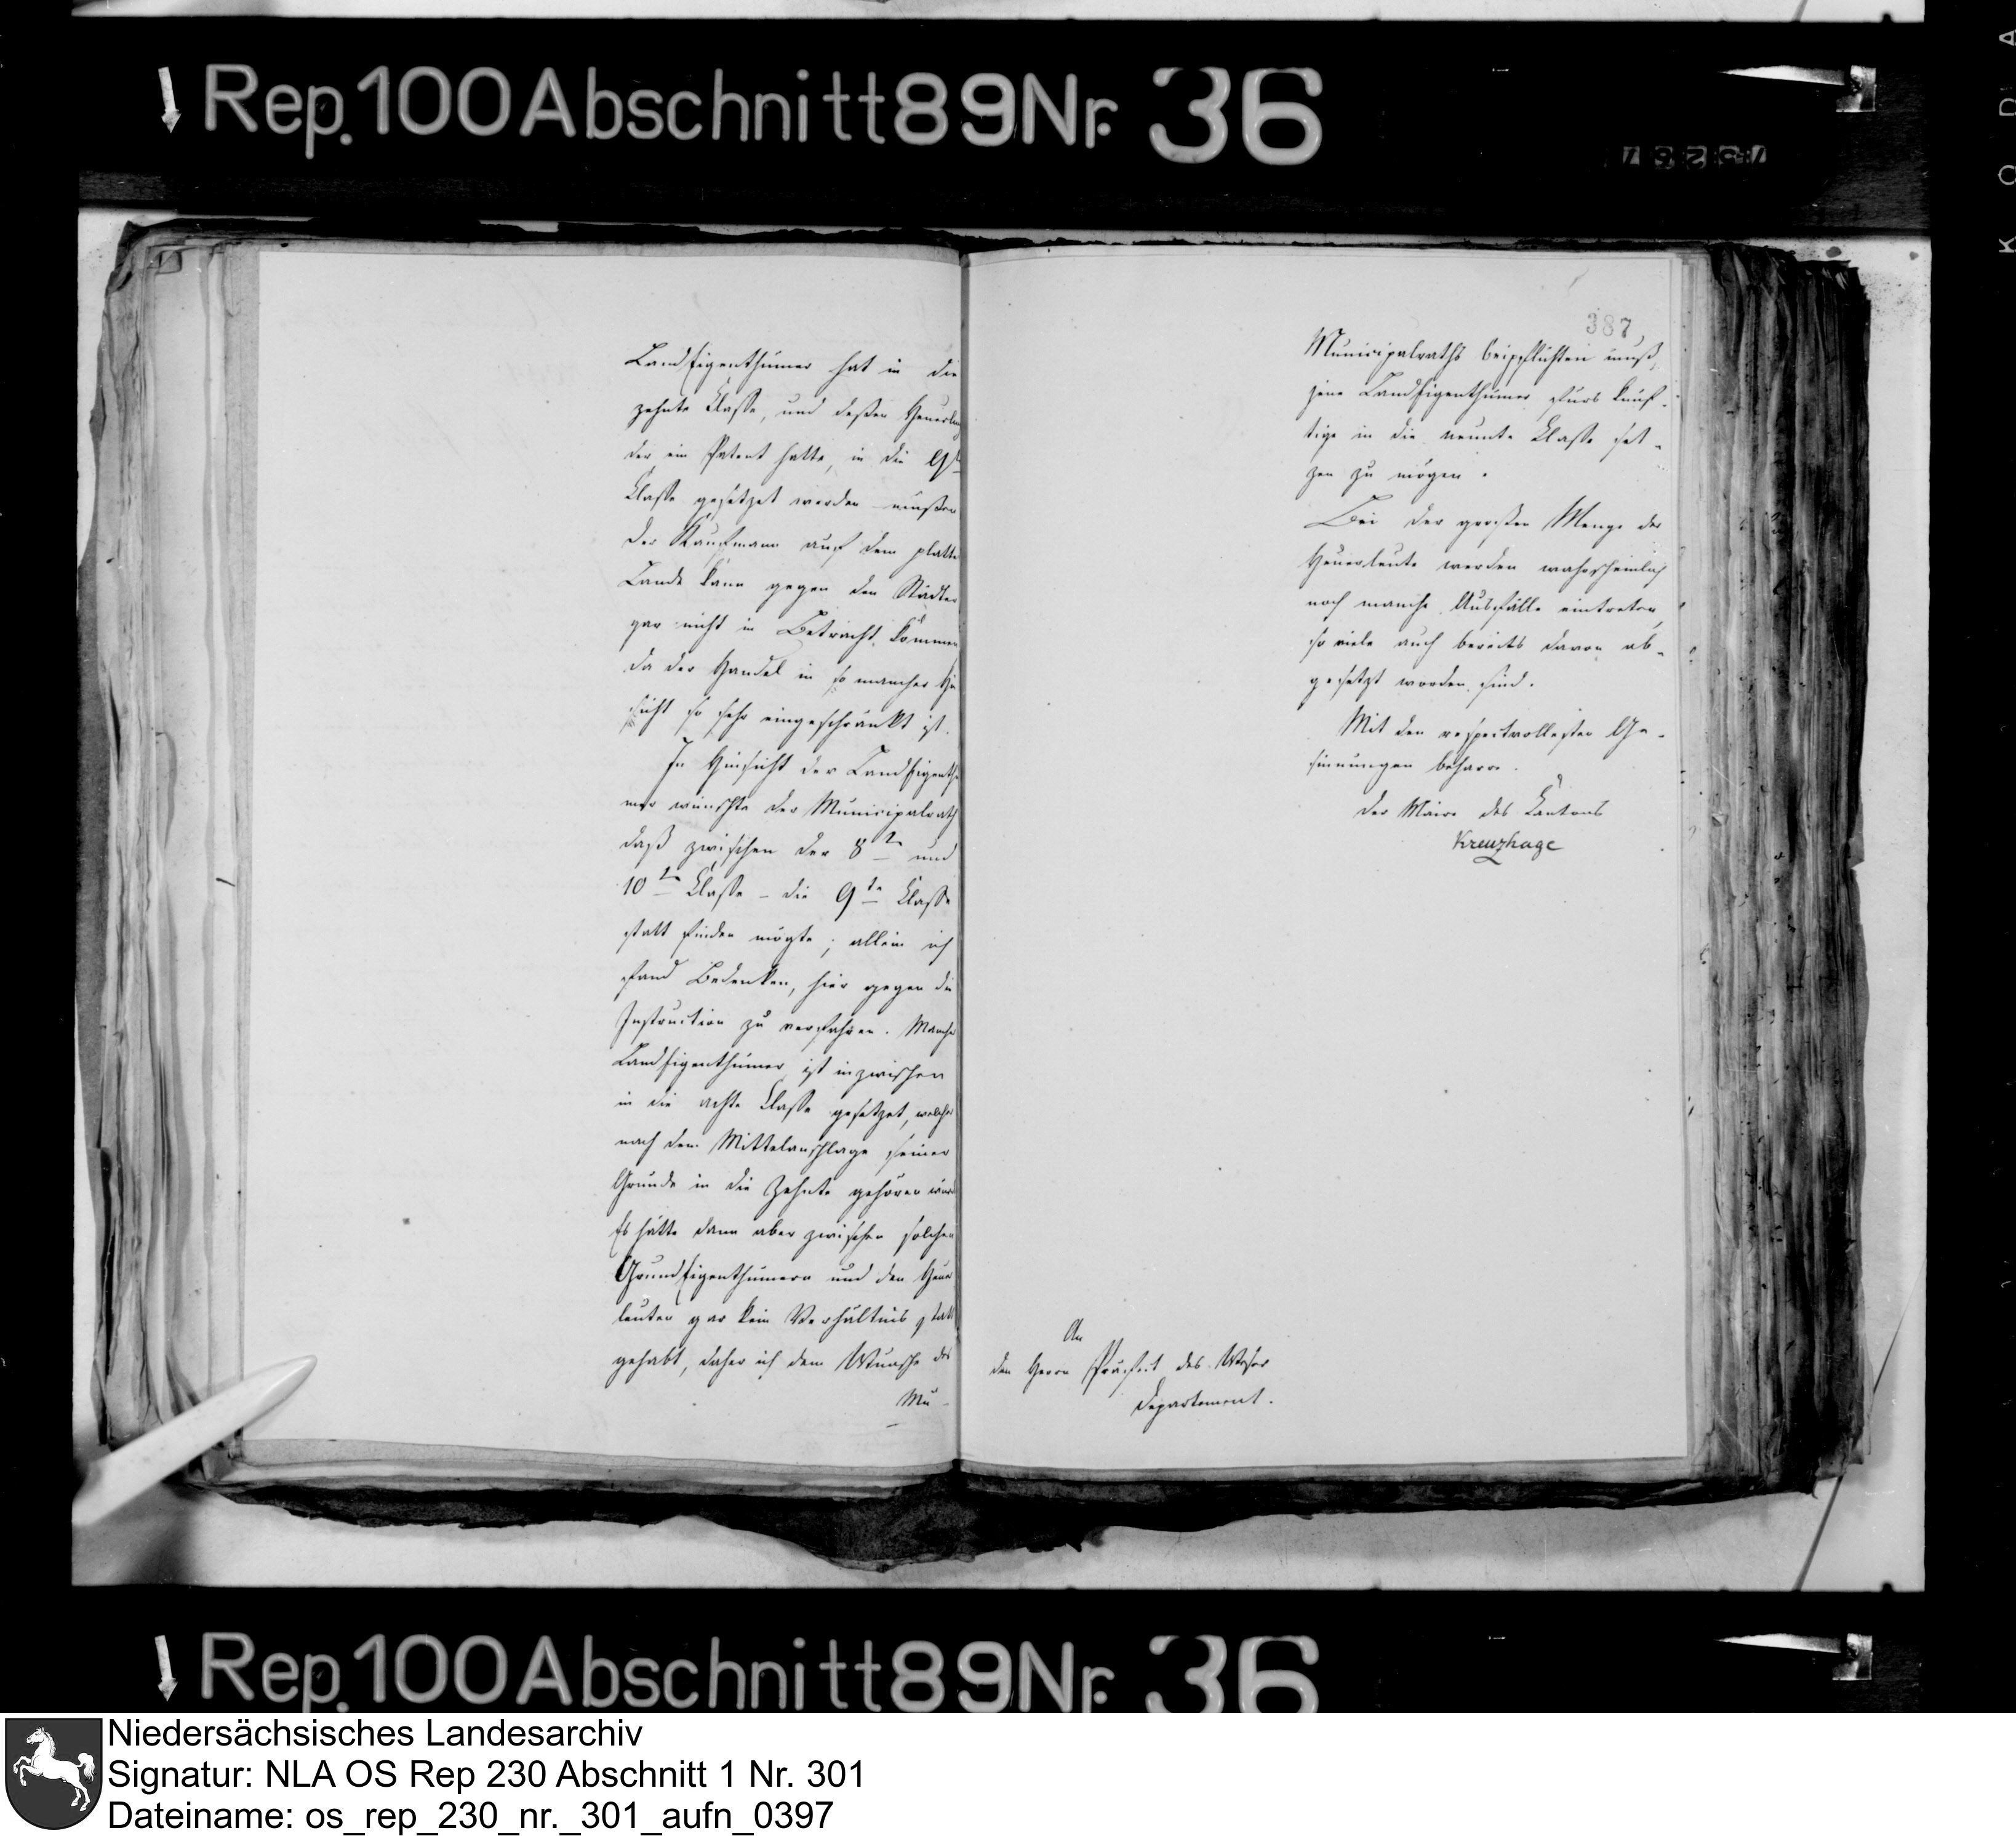 Rep. 100 Abschnitt 89 Nr. 36
LandEigenthümer hat in die
zehnte Classe, und deßen Heuerling
der ein Patent hatte, in die 9te
Classe gesetzet werden müßen
der Kaufmann auf dem platten
Lande kann gegen den Städter
gar nicht in Betracht kommen
da der Handel in so mancher Hin
sicht so sehr eingeschränkt ist.
In Hinsicht der LandEigenthü
mer wünschte der Municipalrath
daß zwischen der 8ten und
10ten Classe - die 9te Classe
statt finden mögte; allein ich
fand Bedenken, hier gegen die
Instruction zu verfahren. Mancher
LandEigenthümer ist inzwischen
in die achte Classe gesetzet, welcher
nach dem Mittelanschlage seiner
Gründe in die Zehnte gehören würde
Es hätte dann aber zwischen solchen
GrundEigenthümern und den Heuer
leuten gar kein Verhältnis statt
gehabt, daher ich dem Wunsche des
Mu-
387
Municipalraths beipflichten muß,
jene LandEigenthümer fürs künf-
tige in die neunte Classe set-
zen zu mögen.
Bei der großen Menge der
Heuerleute werden wahrscheinlich
noch manche Ausfälle eintreten,
so viele auch bereits davon ab-
gesetzt worden sind.
Mit den respectvollesten Ge-
sinnungen beharre.
Der Maire des Cantons
Kreuzhage
An
den Herrn Präfect des Weser
Departement.
Rep. 100 Abschnitt 89 Nr. 36
Niedersächsisches Landesarchiv
Signatur: NLA OS Rep 230 Abschnitt 1 Nr. 301
Dateiname: os_rep_230_nr._301_aufn_0397